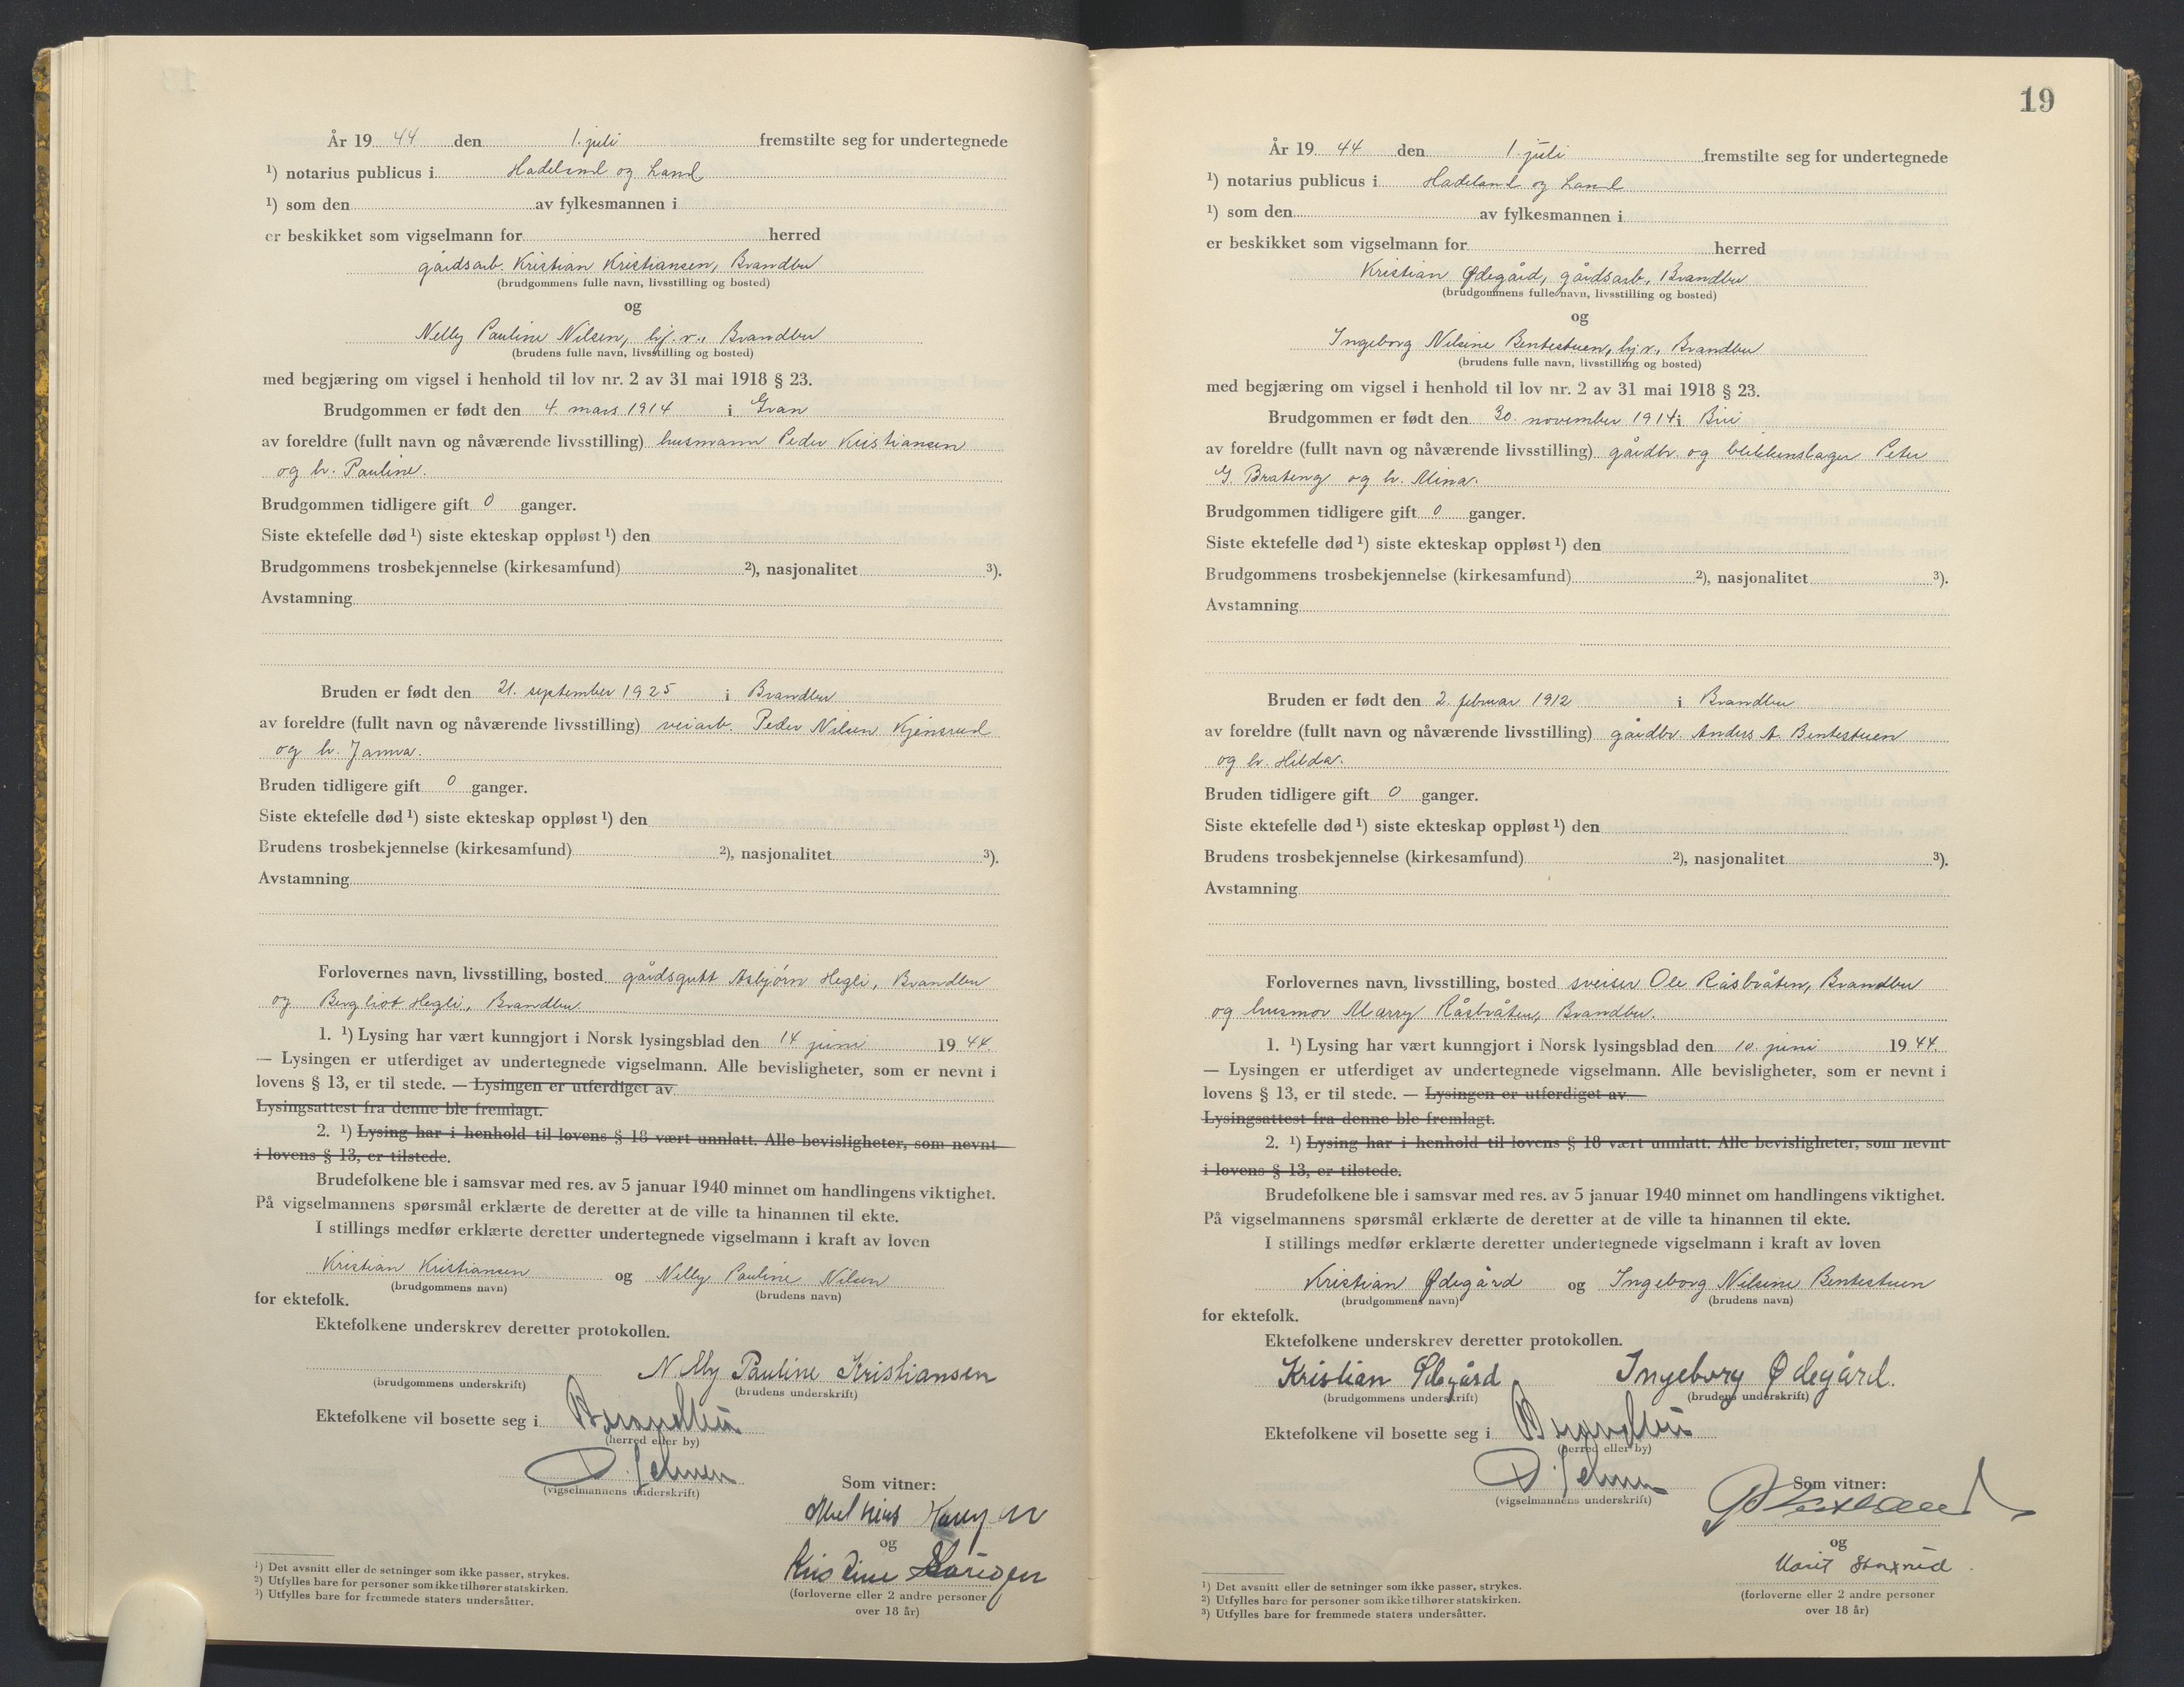 År 19 44 den 1. juli fremstilte seg for undertegnede
¹) notarius publicus i Hadeland og Land
¹) som den av fylkesmannen i
er beskikket som vigselmann for herred
gårdsarb. Kristian Kristiansen, Brandbu
(brudgommens fulle navn, livsstilling og bosted)
og
Nelly Pauline Nilsen, hj. v., Brandbu
(brudens fulle navn, livsstilling og bosted)
med begjæring om vigsel i henhold til lov nr. 2 av 31 mai 1918 § 23.
Brudgommen er født den 4. mars 1914 i Gran
av foreldre (fullt navn og nåværende livsstilling) husmann Peder Kristiansen
og h. Pauline.
Brudgommen tidligere gift 0 ganger.
Siste ektefelle død ¹) siste ekteskap oppløst ¹) den
Brudgommens trosbekjennelse (kirkesamfund) ²), nasjonalitet ³).
Avstamning
Bruden er født den 21. september 1925 i Brandbu
av foreldre (fullt navn og nåværende livsstilling) veiarb. Peder Nilsen Kjensrud
og h. Janna.
Bruden tidligere gift 0 ganger.
Siste ektefelle død ¹) siste ekteskap oppløst ¹) den
Brudens trosbekjennelse (kirkesamfund) ²), nasjonalitet ³).
Avstamning
Forlovernes navn, livsstilling, bosted gårdsgutt Asbjørn Hegli, Brandbu
og Bergliot Hegli, Brandbu
1. ¹) Lysing har vært kunngjort i Norsk lysingsblad den 14 juni 19 44.
— Lysingen er utferdiget av undertegnede vigselmann. Alle bevisligheter, som er nevnt i
lovens § 13, er til stede. — Lysingen er utferdiget av
Lysingsattest fra denne ble fremlagt.
2. ¹) Lysing har i henhold til lovens § 18 vært unnlatt. Alle bevisligheter, som nevnt
i lovens § 13, er tilstede.
Brudefolkene ble i samsvar med res. av 5 januar 1940 minnet om handlingens viktighet.
På vigselmannens spørsmål erklærte de deretter at de ville ta hinannen til ekte.
I stillings medfør erklærte deretter undertegnede vigselmann i kraft av loven
Kristian Kristiansen og Nelly Pauline Nilsen
(brudgommens navn) (brudens navn)
for ektefolk.
Ektefolkene underskrev deretter protokollen.
Nelly Pauline Kristiansen
(brudgommens underskrift) (brudens underskrift)
Ektefolkene vil bosette seg i Brandbu
(herred eller by)
(vigselmannens underskrift)
Som vitner:
og
Kristine
(forloverne eller 2 andre personer
over 18 år)
¹) Det avsnitt eller de setninger som ikke passer, strykes.
²) Utfylles bare for personer som ikke tilhører statskirken.
³) Utfylles bare for fremmede staters undersåtter.
19
År 19 44 den 1. juli fremstilte seg for undertegnede
¹) notarius publicus i Hadeland og Land
¹) som den av fylkesmannen i
er beskikket som vigselmann for herred
Kristian Ødegård, gårdsarb., Brandbu
(brudgommens fulle navn, livsstilling og bosted)
og
Ingeborg Nilsine Bentestuen, hj. v., Brandbu
(brudens fulle navn, livsstilling og bosted)
med begjæring om vigsel i henhold til lov nr. 2 av 31 mai 1918 § 23.
Brudgommen er født den 30. november 1914 i Biri
av foreldre (fullt navn og nåværende livsstilling) gårdbr. og blikkenslager Peter
G. Brateng og h. Mina.
Brudgommen tidligere gift 0 ganger.
Siste ektefelle død ¹) siste ekteskap oppløst ¹) den
Brudgommens trosbekjennelse (kirkesamfund) ²), nasjonalitet ³).
Avstamning
Bruden er født den 2. februar 1912 i Brandbu
av foreldre (fullt navn og nåværende livsstilling) gårdbr. Anders A. Bentestuen
og h. Hilda.
Bruden tidligere gift 0 ganger.
Siste ektefelle død ¹) siste ekteskap oppløst ¹) den
Brudens trosbekjennelse (kirkesamfund) ²), nasjonalitet ³).
Avstamning
Forlovernes navn, livsstilling, bosted sveiser Ole Råsbråten, Brandbu
og husmor Marry Råsbråten, Brandbu.
1. ¹) Lysing har vært kunngjort i Norsk lysingsblad den 10. juni 19 44.
— Lysingen er utferdiget av undertegnede vigselmann. Alle bevisligheter, som er nevnt i
lovens § 13, er til stede. — Lysingen er utferdiget av
Lysingsattest fra denne ble fremlagt.
2. ¹) Lysing har i henhold til lovens § 18 vært unnlatt. Alle bevisligheter, som nevnt
i lovens § 13, er tilstede.
Brudefolkene ble i samsvar med res. av 5 januar 1940 minnet om handlingens viktighet.
På vigselmannens spørsmål erklærte de deretter at de ville ta hinannen til ekte.
I stillings medfør erklærte deretter undertegnede vigselmann i kraft av loven
Kristian Ødegård og Ingeborg Nilsine Bentestuen
(brudgommens navn) (brudens navn)
for ektefolk.
Ektefolkene underskrev deretter protokollen.
Kristian Ødegård Ingeborg Ødegård.
(brudgommens underskrift) (brudens underskrift)
Ektefolkene vil bosette seg i Brandbu
(herred eller by)
(vigselmannens underskrift)
Som vitner:
og
Marit
(forloverne eller 2 andre personer
over 18 år)
¹) Det avsnitt eller de setninger som ikke passer, strykes.
²) Utfylles bare for personer som ikke tilhører statskirken.
³) Utfylles bare for fremmede staters undersåtter.